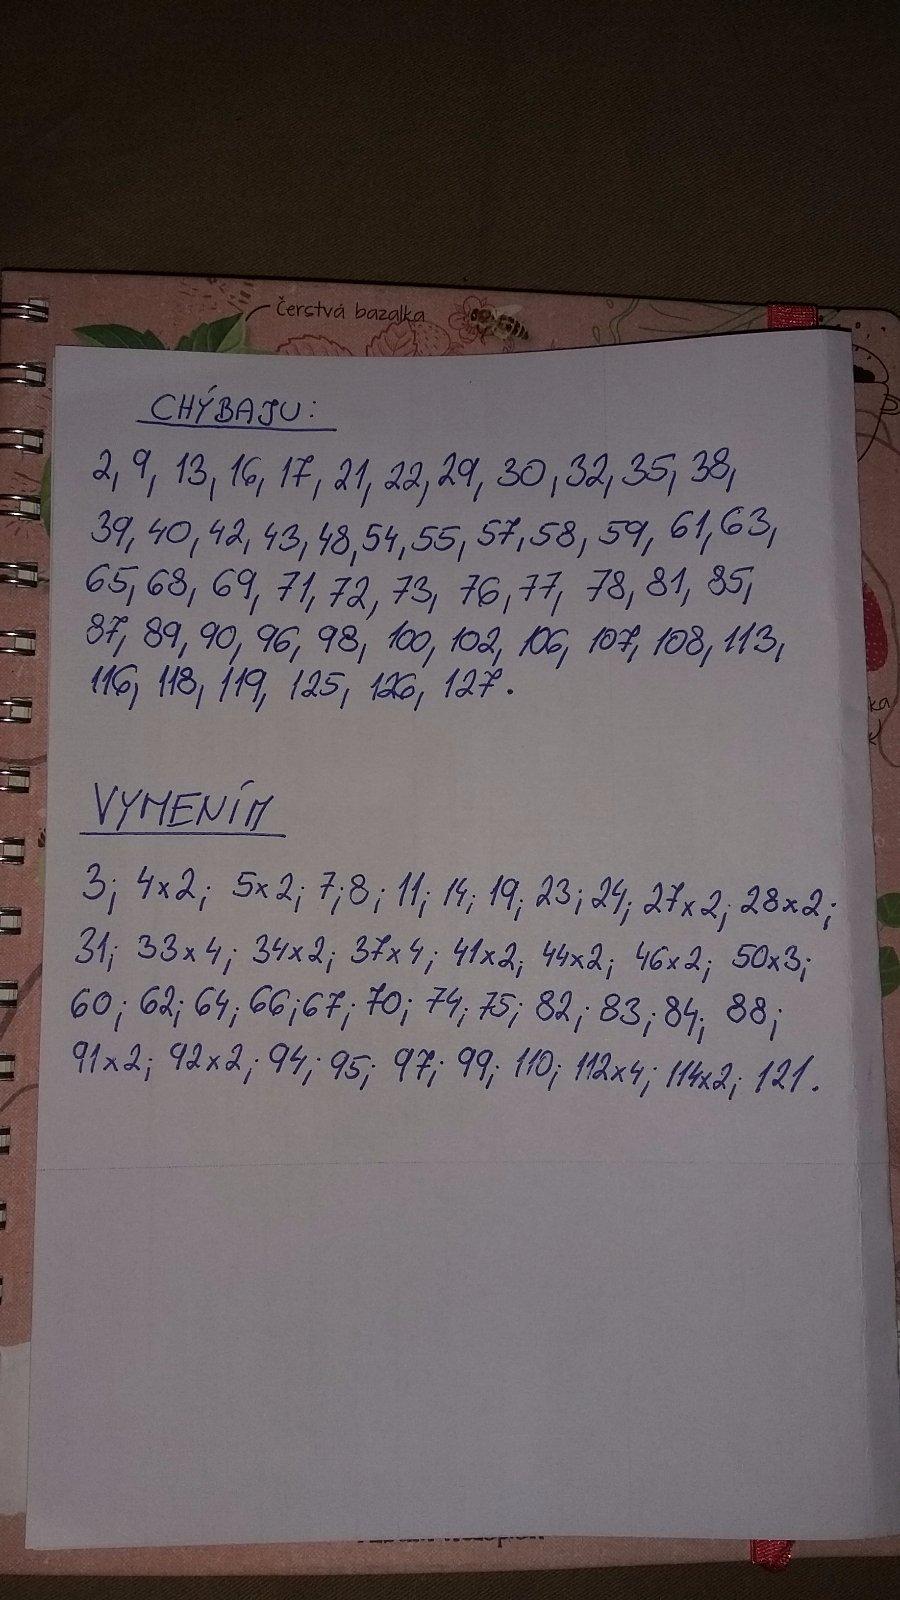 Čerstvá bazalka
CHÝBAJU:
2, 9, 13, 16, 17, 21, 22, 29, 30, 32, 35, 38,
39, 40, 42, 43, 48, 54, 55, 57, 58, 59, 61, 63,
65, 68, 69, 71, 72, 73, 76, 77, 78, 81, 85,
87, 89, 90, 96, 98, 100, 102, 106, 107, 108, 113,
116, 118, 119, 125, 126, 127.
ka
VYMENÍM
3; 4x2; 5x2; 7; 8; 11; 14; 19; 23; 24; 27x2; 28x2;
31; 33x4; 34x2; 37x4; 41x2; 44x2; 46x2; 50x3;
60; 62; 64; 66; 67; 70; 74; 75; 82; 83; 84; 88;
91x2; 92x2; 94; 95; 97; 99; 110; 112x4; 114x2; 121.